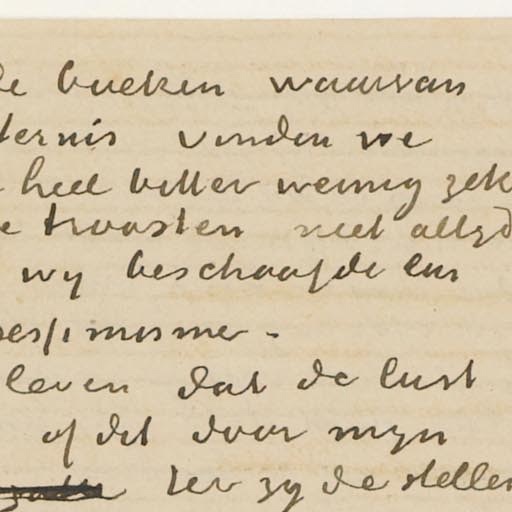 de boeken waarvan
ternis vinden we
heel bitter weinig zek
e troosten niet altijd
wij beschaafde lui
pessimisme -
leven dat de lust
of dit door mijn
ter zijde stellen